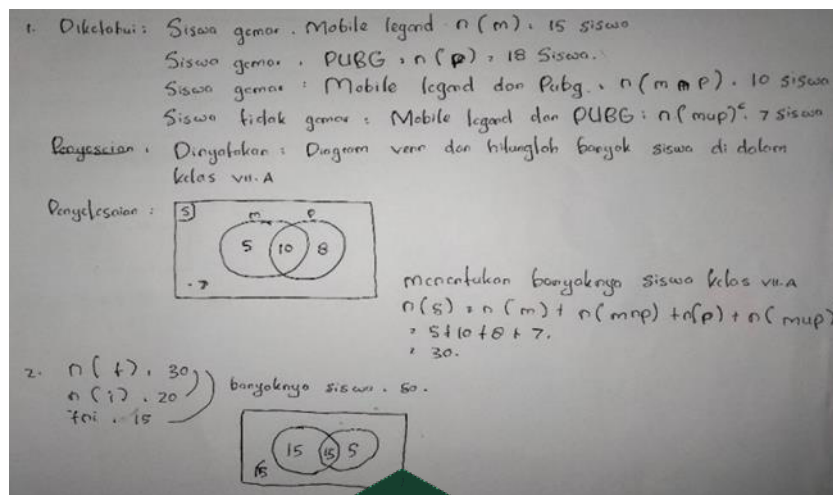 1. Diketahui : Siswa gemar . Mobile legend n(m) . 15 siswa
Siswa gemar . PUBG : n(p) = 18 Siswa.
Siswa gemar : Mobile legend dan Pubg . n(m n p) . 10 siswa
Siswa tidak gemar : Mobile legend dan PUBG : n(mup)ᶜ. 7 siswa
Dinyatakan : Diagram venn dan hitunglah banyak siswa di dalam
kelas VII.A
Penyelesaian :
S
m p
5 10 8
.7
menentukan banyaknya siswa kelas VII.A
n(s) = n(m) + n(mnp) + n(p) + n(mup)
= 5+10+8+7.
= 30.
2. n(f) . 30
n(i) . 20
fni . 15
banyaknya siswa . 50.
15 15 5
15